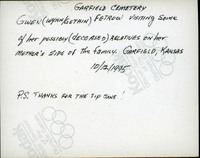 GARFIELD CEMETERY
GWEN (WYNN/GETAIN) FETROW VISITING SOME
OF HER POSSIBLY (DECEASED) RELATIVES ON HER
MOTHER'S SIDE OF THE FAMILY. GARFIELD, KANSAS
10/12/1995
P.S. THANKS FOR THE ZIP JANE!